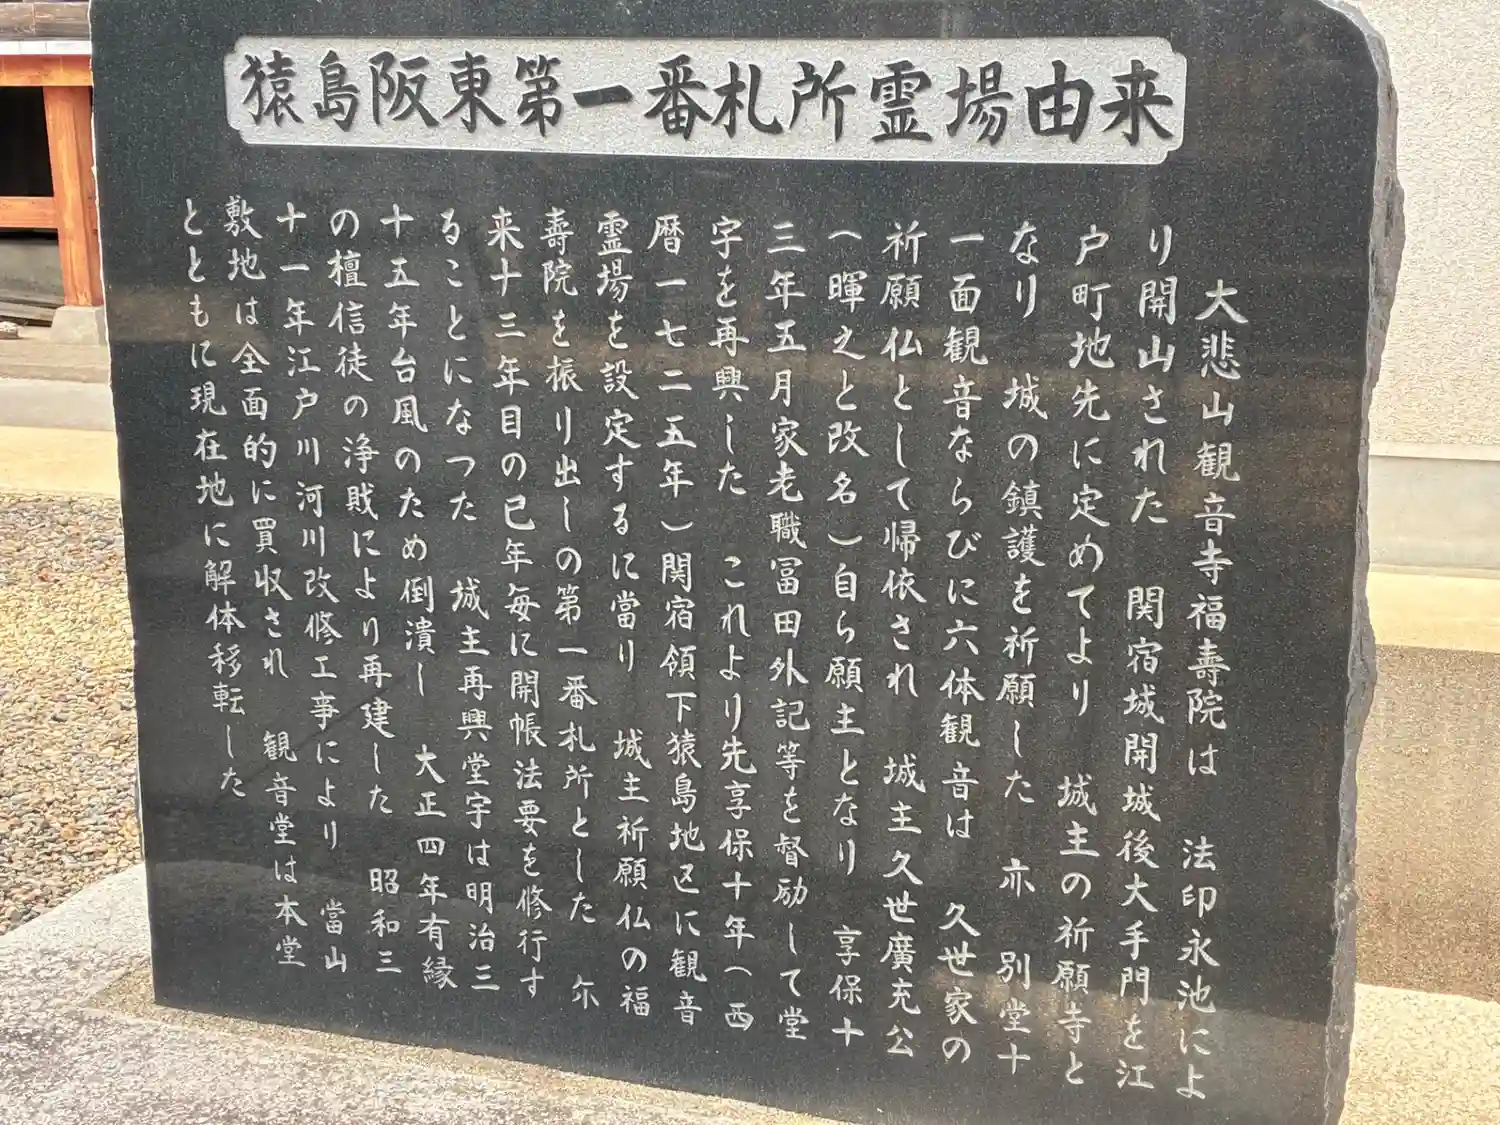 猿島阪東第一番札所霊場由来
大悲山観音寺福壽院は　法印永池によ
り開山された　関宿城開城後大手門を江
戸町地先に定めてより　城主の祈願寺と
なり　城の鎮護を祈願した　亦　別堂十
一面観音ならびに六体観音は　久世家の
祈願仏として帰依され　城主久世廣充公
（暉之と改名）自ら願主となり　享保十
三年五月家老職冨田外記等を督励して堂
宇を再興した　これより先享保十年（西
暦一七二五年）関宿領下猿島地区に観音
霊場を設定するに當り　城主祈願仏の福
壽院を振り出しの第一番札所とした　尓
来十三年目の巳年毎に開帳法要を修行す
ることになつた　城主再興堂宇は明治三
十五年台風のため倒潰し　大正四年有縁
の檀信徒の浄賎により再建した　昭和三
十一年江戸川河川改修工事により　當山
敷地は全面的に買収され　観音堂は本堂
とともに現在地に解体移転した